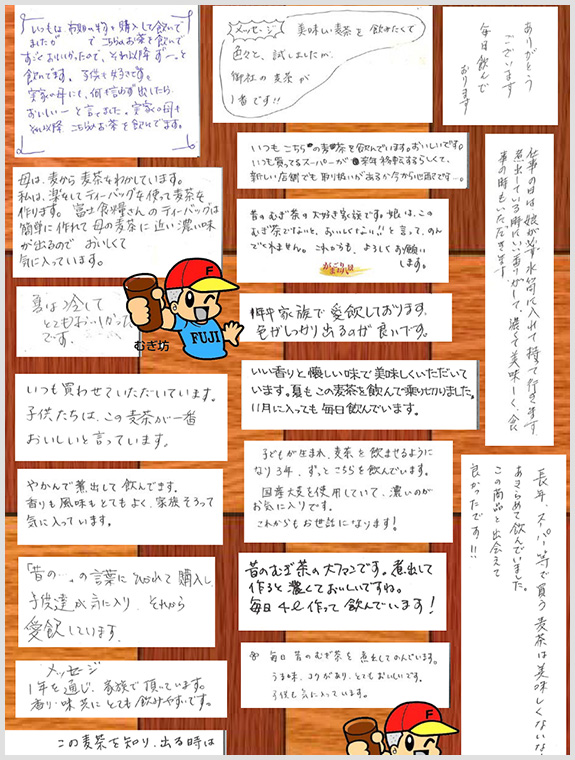 いつもは有名の物を購入して飲いで
ましたが で こちらのお茶を飲いで
すごくおいしかったので、それ以降ずーっと
飲いでます。子供も好きですよ
実家の母にも、何も言わず出したら
おいしいーと言ってました。実家の母も
それ以降 こちらのお茶を飲いでます。
メッセージ
美味しい麦茶を飲みたくて
色々と、試しましたが、
御社の麦茶が
1番です!!
ありがとう
ございます
毎日飲んで
おります
母は、麦から麦茶をわかしています。
私は、楽をしてティーバッグを使って麦茶を
作ります。富士食糧さんのティーバッグは
簡単に作れて母の麦茶に近い濃い味
が出るので おいしくて
気に入っています。
いつもこちらの麦茶を飲んでいます。おいしいです。
いつも買ってるスーパーが来年移転するらしくて、
新しい店舗でも取り扱いがあるか今から心配です…。
昔のむぎ茶の大好き家族です。娘は、この
むぎ茶でないと、おいしくない!!と言って、のん
でくれません。これからも、よろしくお願い
します。
仕事の日は娘が必ず水筒に入れて持って行きます
煮出している時にいい香りがして、濃くて美味しく、食
事の時もいただきます
夏は冷して
とてもおいしかった
です。
F
FUJI
むぎ坊
1年中家族で愛飲しております。
色がしっかり出るのが良いです。
いい香りと懐しい味で美味しくいただいて
います。夏もこの麦茶を飲んで乗りきりました。
11月に入っても毎日飲んでいます。
いつも買わせていただいています。
子供たちは、この麦茶が一番
おいしいと言っています。
子どもが生まれ、麦茶を飲ませるように
なり3年、ずっとこちらを飲んでいます。
国産大麦を使用していて、濃いのが
お気に入りです。
これからもお世話になります!
やかんで煮出して飲んでます。
香りも風味もとてもよく、家族そろって
気に入っています。
長年、スーパー等で買う麦茶は美味しくないな
あきらめて飲んでいました。
この商品と出会えて
良かったです!!
「昔の…。の言葉にひかれて購入し
子供達が気に入り、それから
愛飲しています。
昔のむぎ茶の大ファンです。煮出して
作ると濃くておいしいですね。
毎日4ℓ作って飲んでいます!
メッセージ
1年を通じ、家族で頂いています。
香り・味共にとても飲みやすいです。
毎日昔のむぎ茶を煮出してのんでいます。
うま味、コクがあり、とてもおいしいです。
子供も気に入っています。
F
この麦茶を知り、出る時は